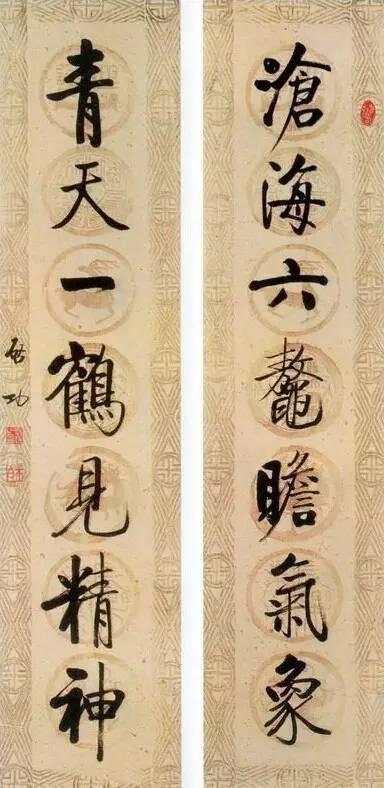 滄海六鼇瞻氣象
青天一鶴見精神
啟功